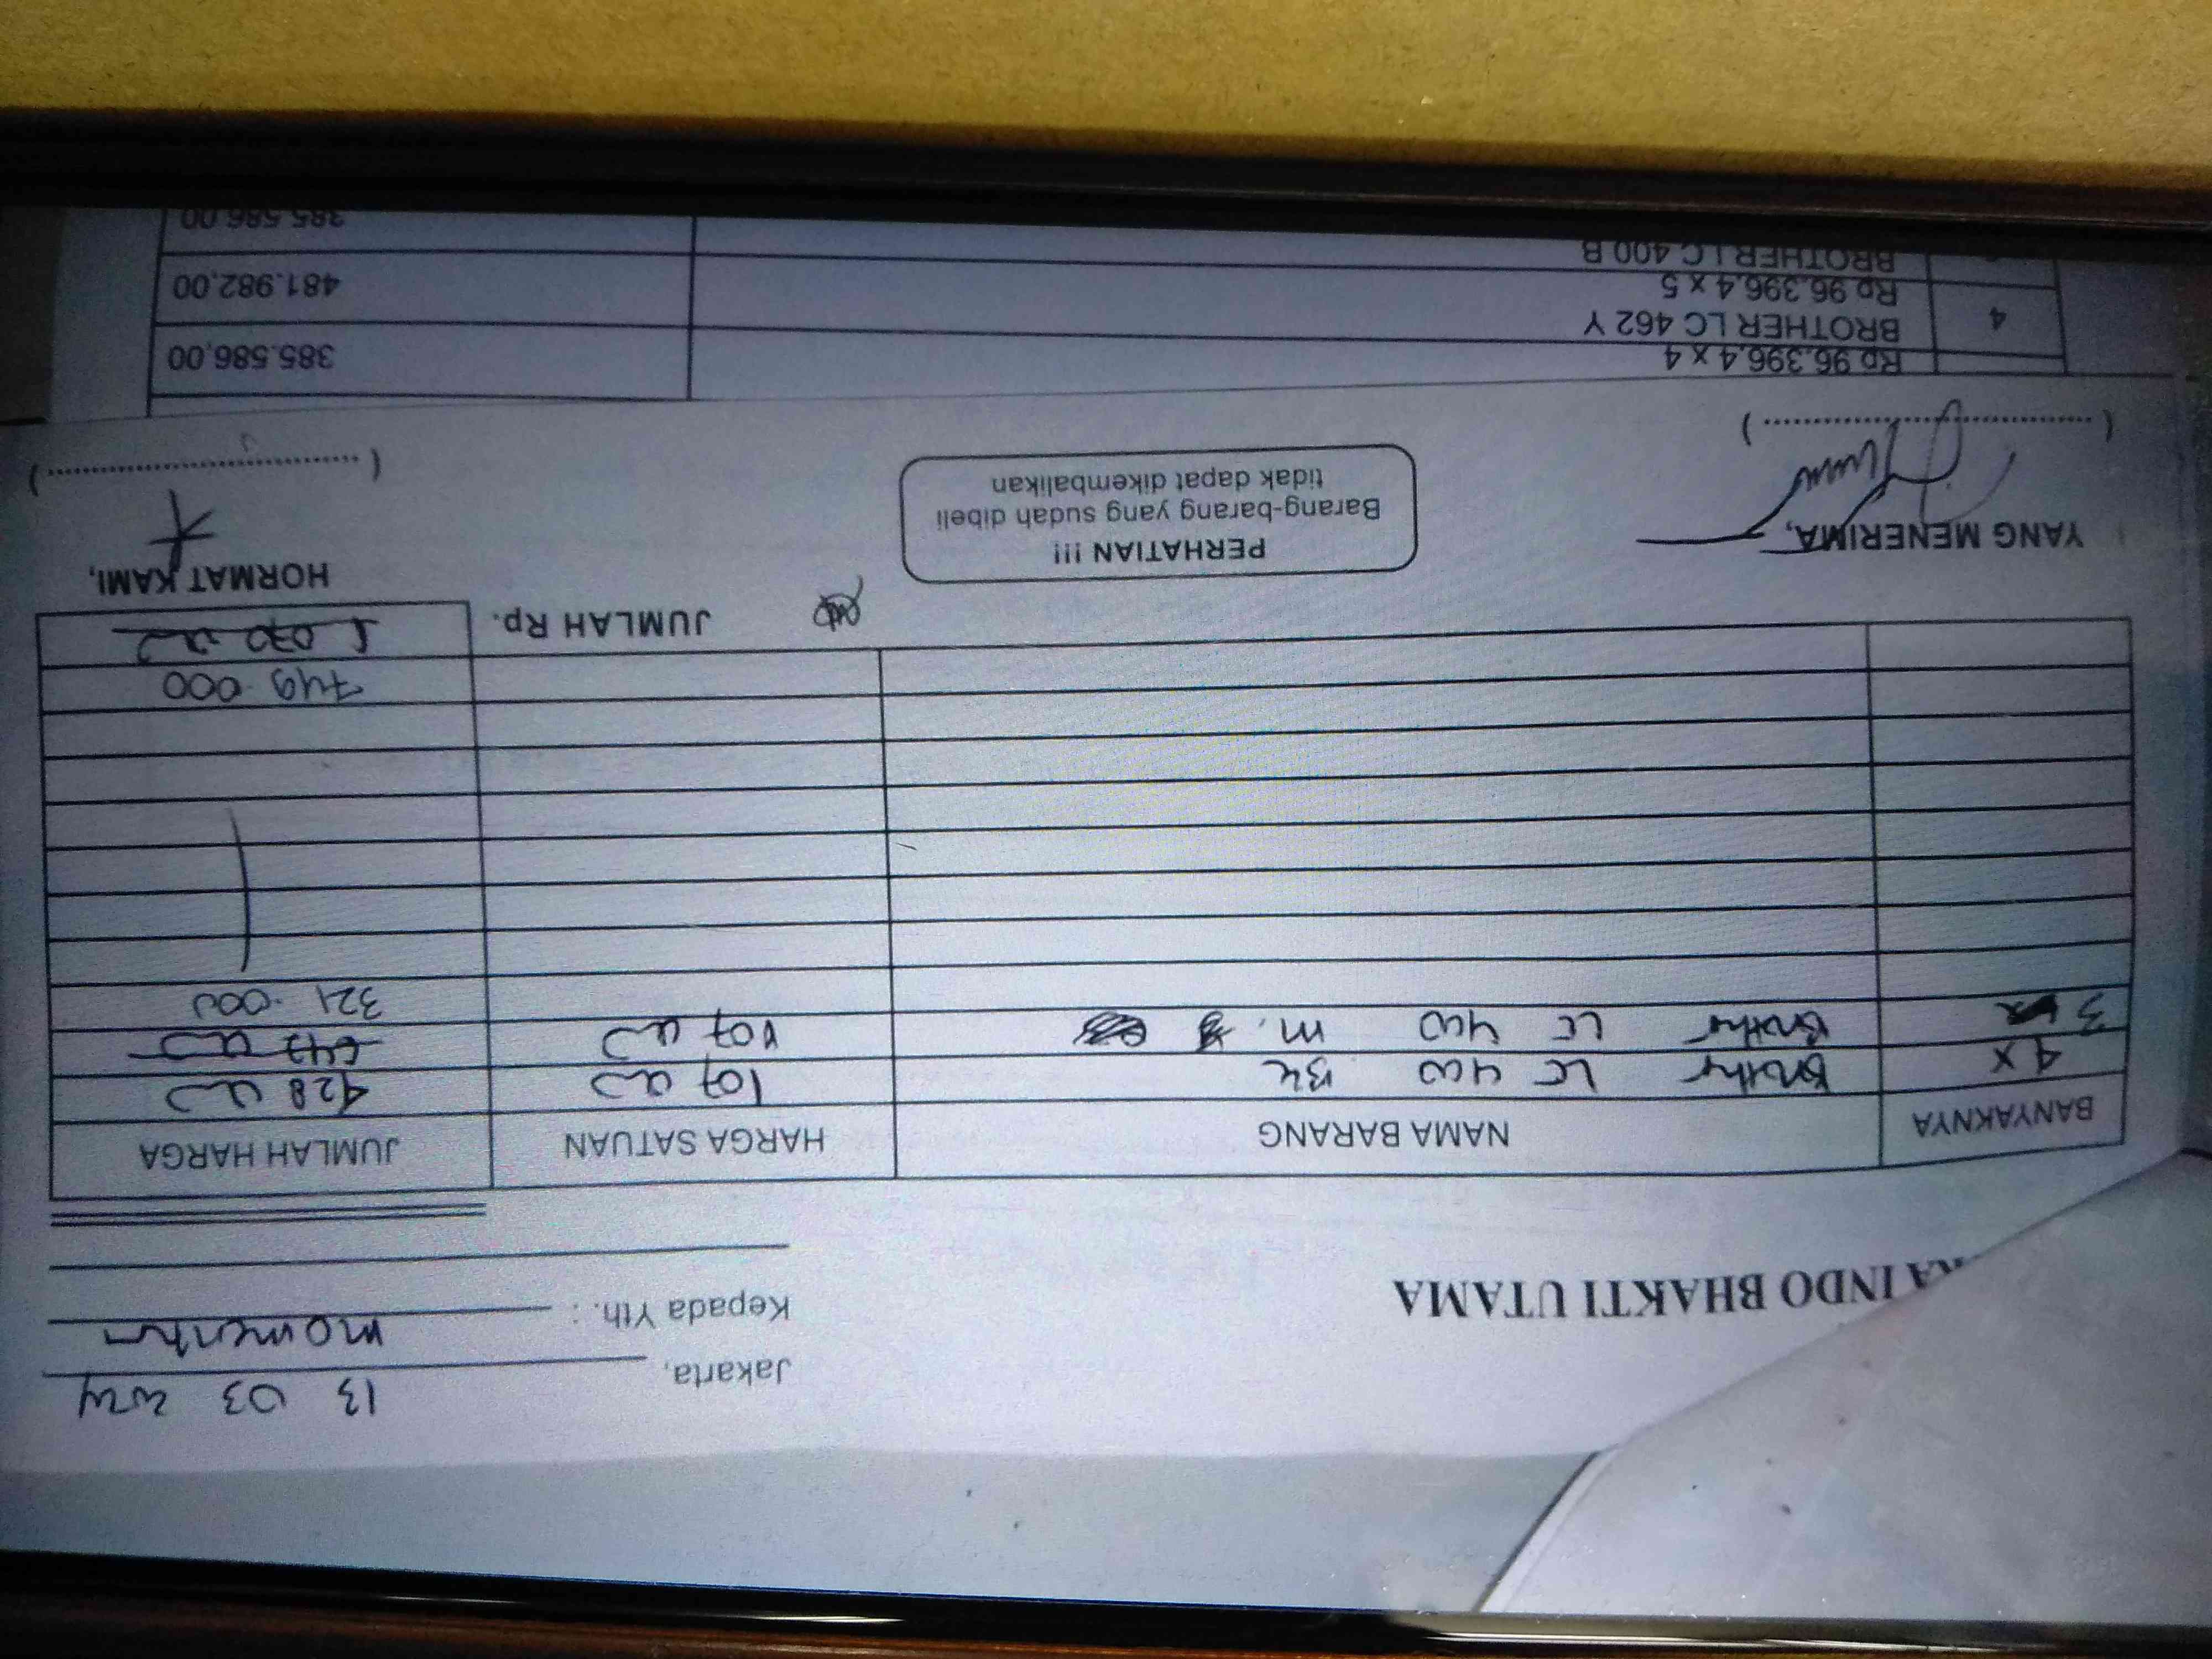 13 03
Jakarta,
Kepada Yth. :
A INDO BHAKTI UTAMA
BANYAKNYA NAMA BARANG HARGA SATUAN JUMLAH HARGA
4 x Brother LC 400 BK 107 000 428 000
3 Brother LC 400 M. 107 000 642 000
321.000
749.000
JUMLAH Rp. 1.070 000
YANG MENERIMA, HORMAT KAMI,
PERHATIAN !!!
Barang-barang yang sudah dibeli
tidak dapat dikembalikan
(....................) (....................)
Rp 96.396,4 x 4 385.586,00
4 BROTHER LC 462 Y
Rp 96.396,4 x 5 481.982,00
BROTHER LC 400 B
385.586,00